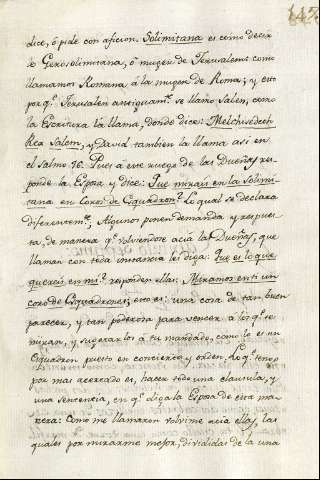 147
dice, ó pide con aficion. Solimitana es como decir
lo Gerosolimitana, ó muger de Jerusalem: como
llamamos Romana á la muger de Roma; y esto
porq.e Jerusalén antiguam.te se llamó Salen, como
la Escritura la llama, donde dice: Melchisedech
Rex Salem, y David tambien la llama asi en
el Salmo 76. Pues a este ruego de las Dueñas res-
ponde la Esposa y dice: Que mirais en la Solimi-
tana en Coros de Esquadron? Lo qual se declara
diferentem.te; Algunos ponen demanda y respues-
ta, de manera q.e volviendose acia las Dueñas, que
llaman con toda instancia les diga: Que es lo que
quereis en mi? responden ellas: Miramos en ti un
coro de Esquadrones; esto es: una cosa de tan buen
parecer, y tan poderosa para vencer a los q.e te
miran, y sugetarlos á tu mandado, como lo es un
Esquadron puesto en concierto y orden. Lo q.e tengo
por mas acertado es, hacer todo una clausula, y
una sentencia, en q.e diga la Esposa de esta ma-
nera: Como me llamaron volvime acia ellas, las
quales por mirarme mejor, divididas de la una